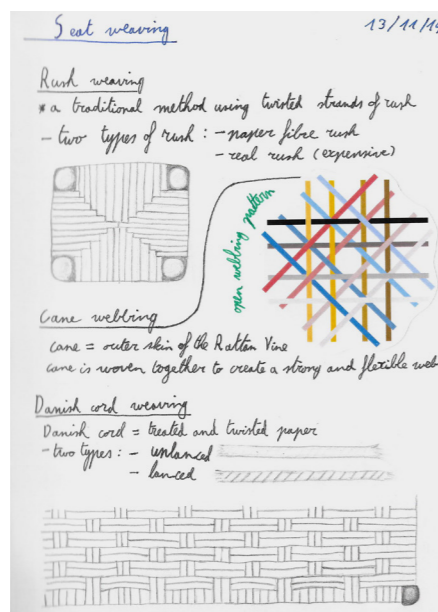 Seat weaving
13/11/19
Rush weaving
* a traditional method using twisted strands of rush
- two types of rush : - paper fibre rush
- real rush (expensive)
open webbing pattern
Cane webbing
cane = outer skin of the Rattan Vine
cane is woven together to create a strong and flexible web
Danish cord weaving
Danish cord = treated and twisted paper
- two types : - unlanced
- lanced